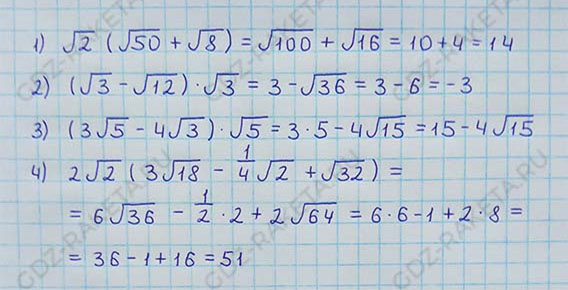 1) √2 (√50 + √8) = √100 + √16 = 10 + 4 = 14
2) (√3 - √12) · √3 = 3 - √36 = 3 - 6 = -3
3) (3√5 - 4√3) · √5 = 3 · 5 - 4√15 = 15 - 4√15
4) 2√2 (3√18 - 1/4 √2 + √32) =
= 6√36 - 1/2 · 2 + 2√64 = 6 · 6 - 1 + 2 · 8 =
= 36 - 1 + 16 = 51
GDZ-RAKETA.RU